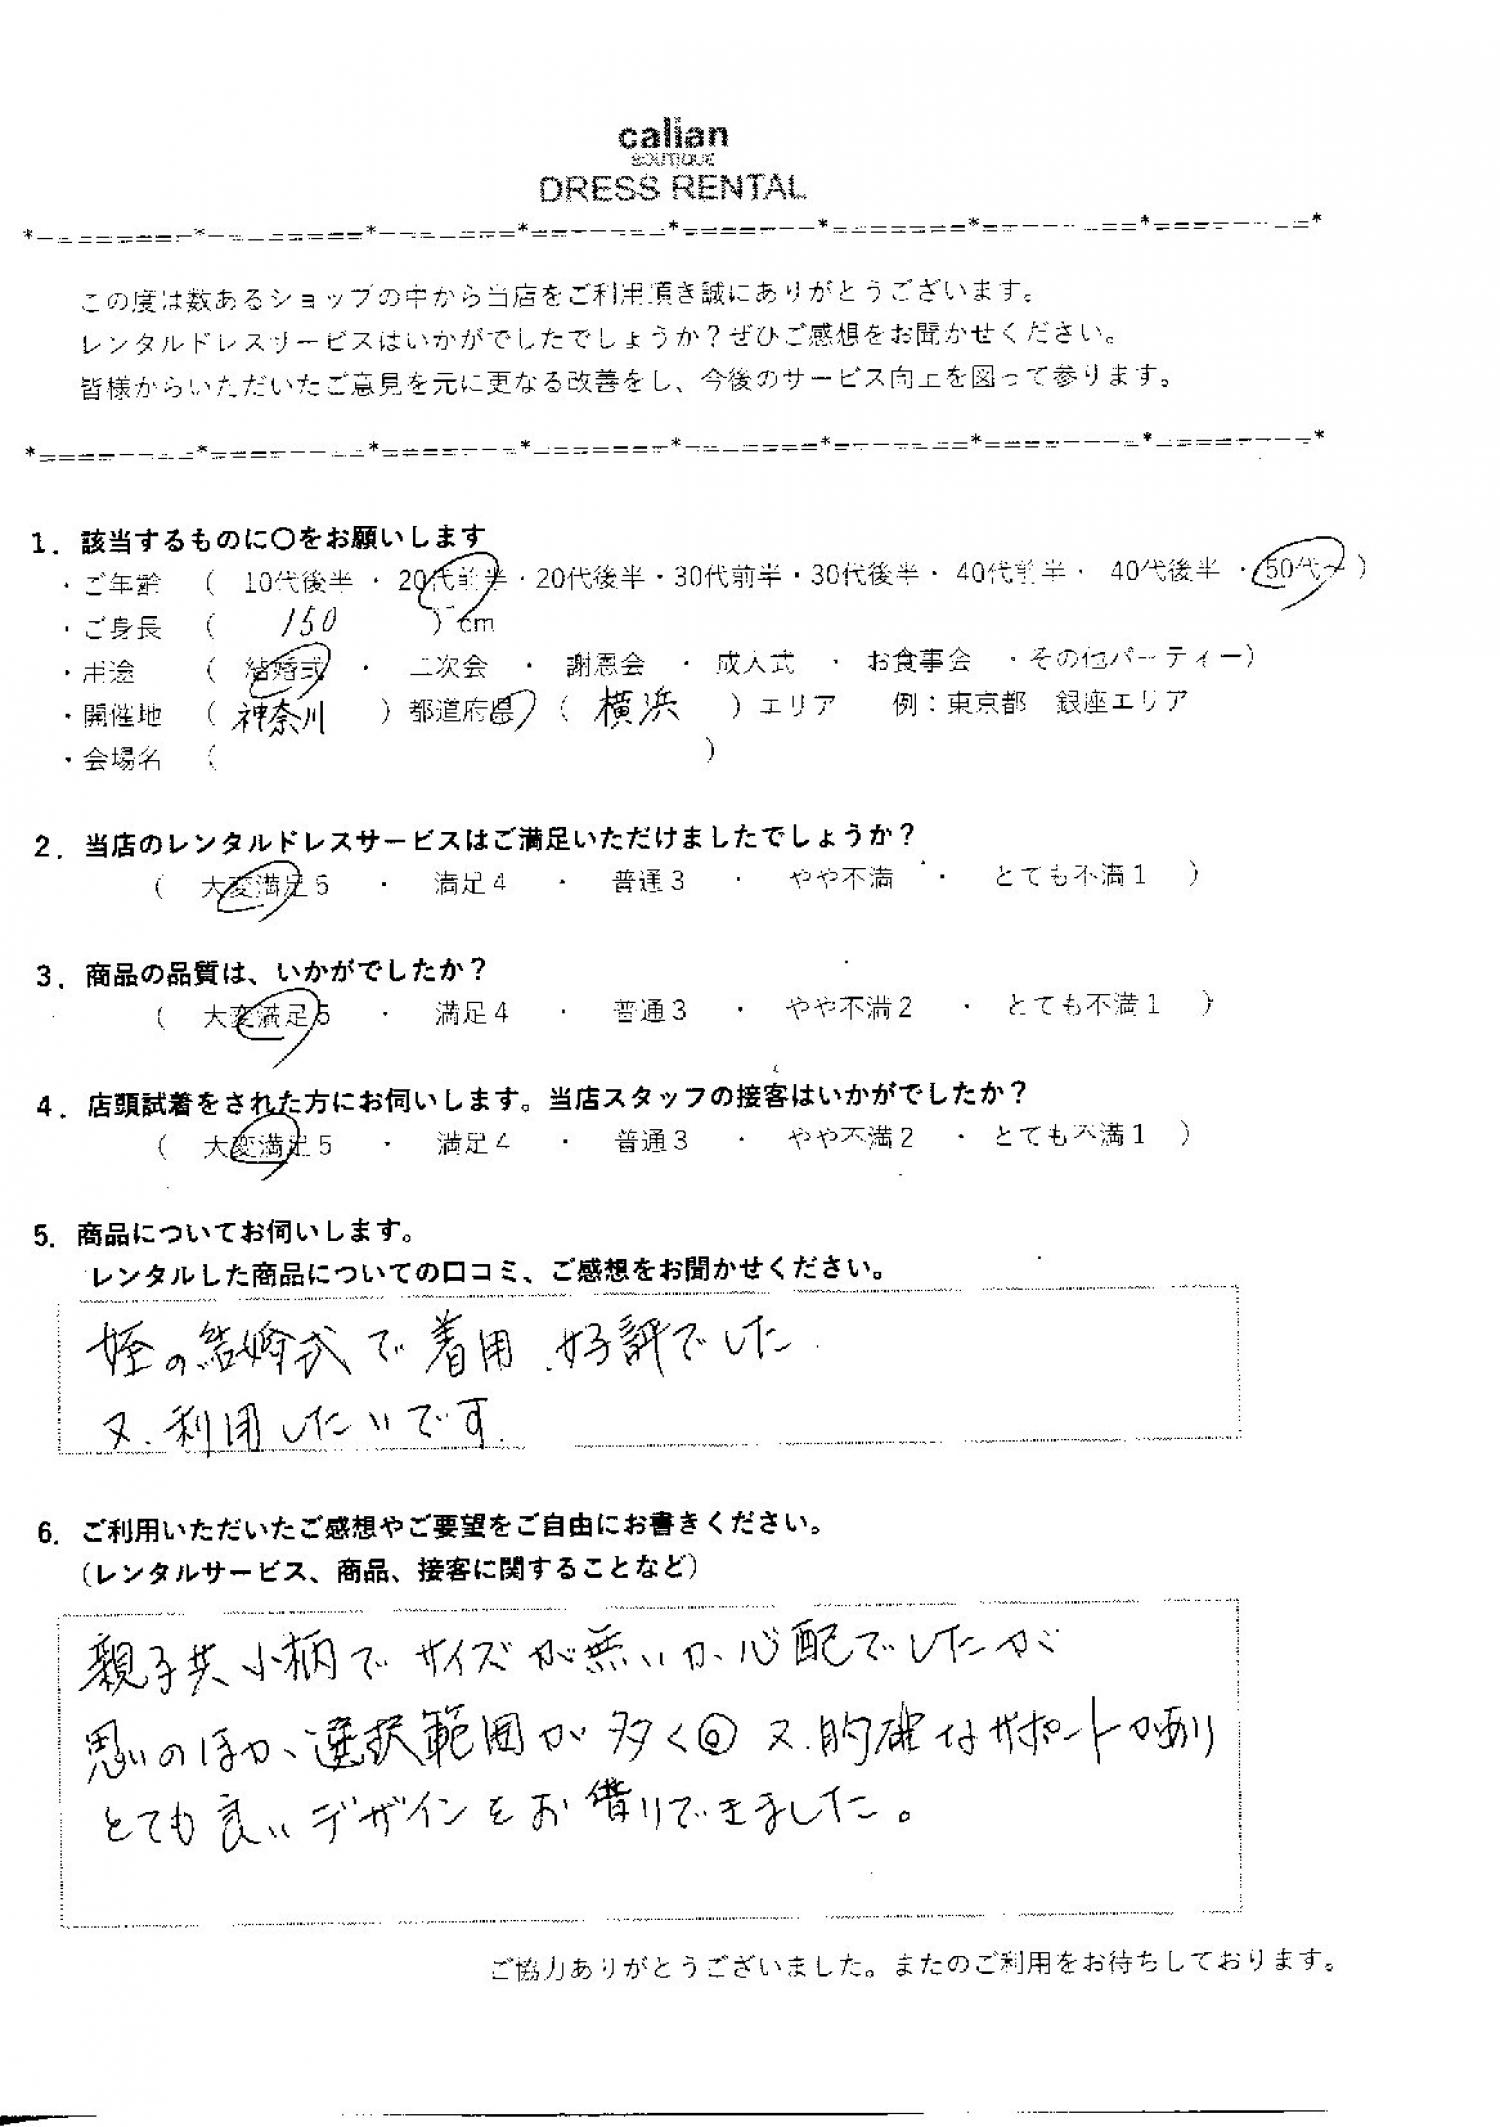 calian
BOUTIQUE
DRESS RENTAL
この度は数あるショップの中から当店をご利用頂き誠にありがとうございます。
レンタルドレスサービスはいかがでしたでしょうか？ぜひご感想をお聞かせください。
皆様からいただいたご意見を元に更なる改善をし、今後のサービス向上を図って参ります。
1．該当するものに〇をお願いします
・ご年齢 （ 10代後半 ・ 20代前半・20代後半・30代前半・30代後半・ 40代前半・ 40代後半 ・50代〜）
・ご身長 （ 150 ）cm
・用途 （ 結婚式 ・ 二次会 ・ 謝恩会 ・ 成人式 ・ お食事会 ・その他パーティー）
・開催地 （ 神奈川 ）都道府県 （ 横浜 ）エリア 例：東京都 銀座エリア
・会場名 （ ）
2．当店のレンタルドレスサービスはご満足いただけましたでしょうか？
（ 大変満足5 ・ 満足4 ・ 普通3 ・ やや不満 ・ とても不満1 ）
3．商品の品質は、いかがでしたか？
（ 大変満足5 ・ 満足4 ・ 普通3 ・ やや不満2 ・ とても不満1 ）
4．店頭試着をされた方にお伺いします。当店スタッフの接客はいかがでしたか？
（ 大変満足5 ・ 満足4 ・ 普通3 ・ やや不満2 ・ とても不満1 ）
5．商品についてお伺いします。
レンタルした商品についての口コミ、ご感想をお聞かせください。
姪の結婚式で着用、好評でした
又、利用したいです.
6．ご利用いただいたご感想やご要望をご自由にお書きください。
（レンタルサービス、商品、接客に関することなど）
親子共小柄でサイズが無いか、心配でしたが
思いのほか、選択範囲が多く◎ 又、的確なサポートがあり
とても良いデザインをお借りできました。
ご協力ありがとうございました。またのご利用をお待ちしております。